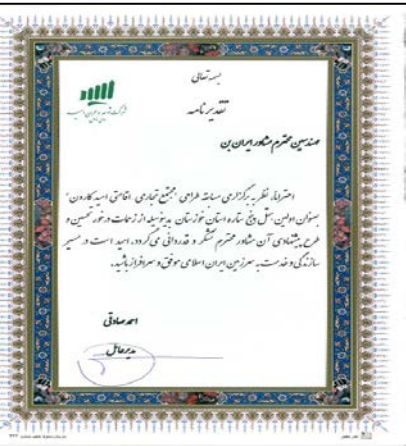 بسمه تعالی
تقدیر نامه
مهندسین محترم مشاور ایران بن
احتراماً، نظر به برگزاری مسابقه طراحی "مجتمع تجاری اقامتی امید کارون"
بعنوان اولین هتل پنج ستاره استان خوزستان بدینوسیله از زحمات درخور تحسین و
طرح پیشنهادی آن مشاور محترم تشکر و قدردانی می گردد. امید است در مسیر
سازندگی و خدمت به سرزمین ایران اسلامی موفق و سرافراز باشید.
احمد صادقی
مدیرعامل